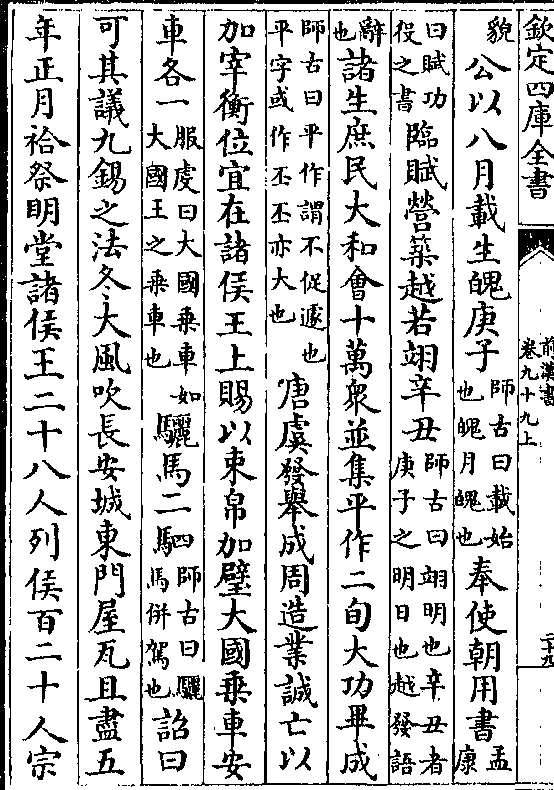 欽定四庫全書
前漢書
卷九十九上
二十九
貌公以八月載生魄庚子師古曰載始也魄月魄也奉使朝用書孟康
曰賦功役之書臨賦營築越若翊辛丑師古曰翊明也辛丑者庚子之明日也越發語
辭也諸生庶民大和會十萬衆並集平作二旬大功畢成
師古曰平作謂不促遽也平字或作丕丕亦大也唐虞發舉成周造業誠亡以
加宰衡位宜在諸侯王上賜以束帛加璧大國乗車安
車各一服虔曰大國乗車如大國王之乗車也驪馬二駟師古曰驪馬併駕也詔曰
可其議九錫之法冬大風吹長安城東門屋瓦且盡五
年正月祫祭明堂諸侯王二十八人列侯百二十人宗